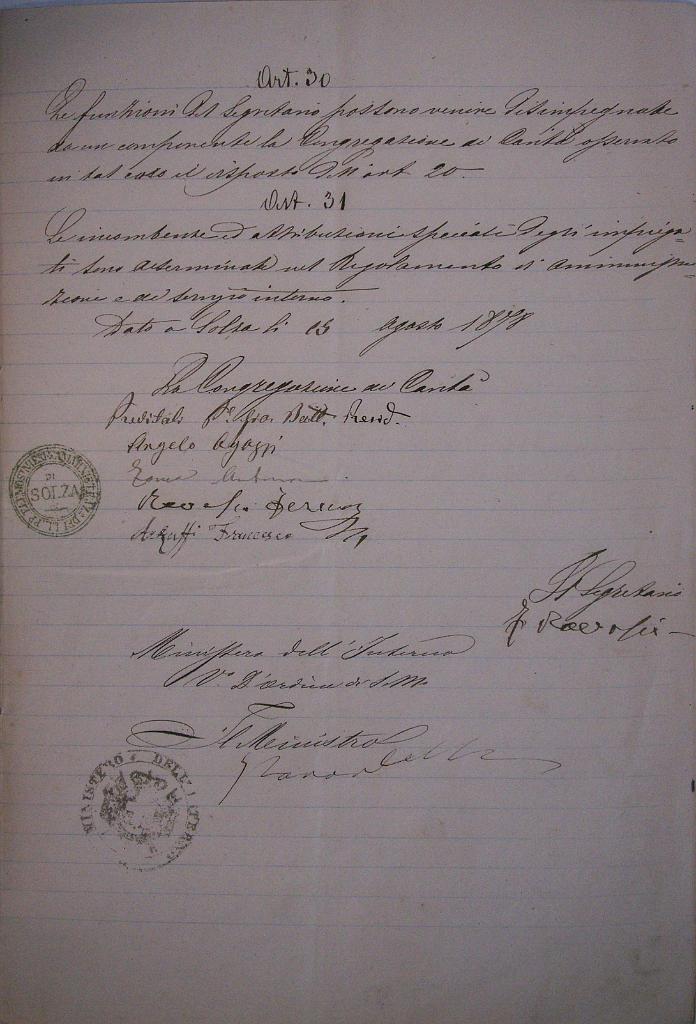 Art. 30
Le funzioni del Segretario possono venire disimpegnate
da un componente la Congregazione di Carità osservato
in tal caso il disposto dell'art. 20.
Art. 31
Le incombenze ed attribuzioni speciali degli impiega-
ti sono determinate nel Regolamento di amministra-
zione e di servizio interno.
Dato a Solza li 15 Agosto 1878
La Congregazione di Carità
Gio. Batt. Presid.
Angelo Agazzi
Francesco
DI
SOLZA
Il Segretario
Ministero dell'Interno
V. D'ordine di S. M.
Il Ministro
MINISTERO DELL'INTERNO